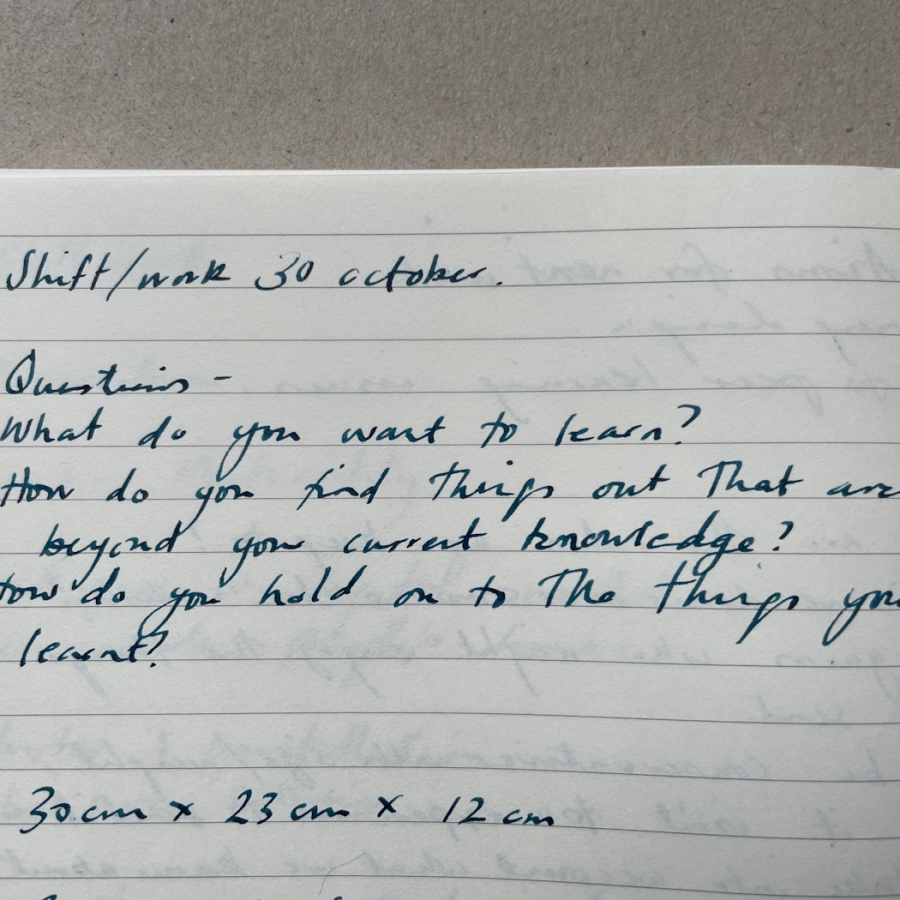 Shift/work 30 october.
Questions -
What do you want to learn?
How do you find things out that are
beyond your current knowledge?
How do you hold on to the things you
learnt?
30cm x 23cm x 12cm